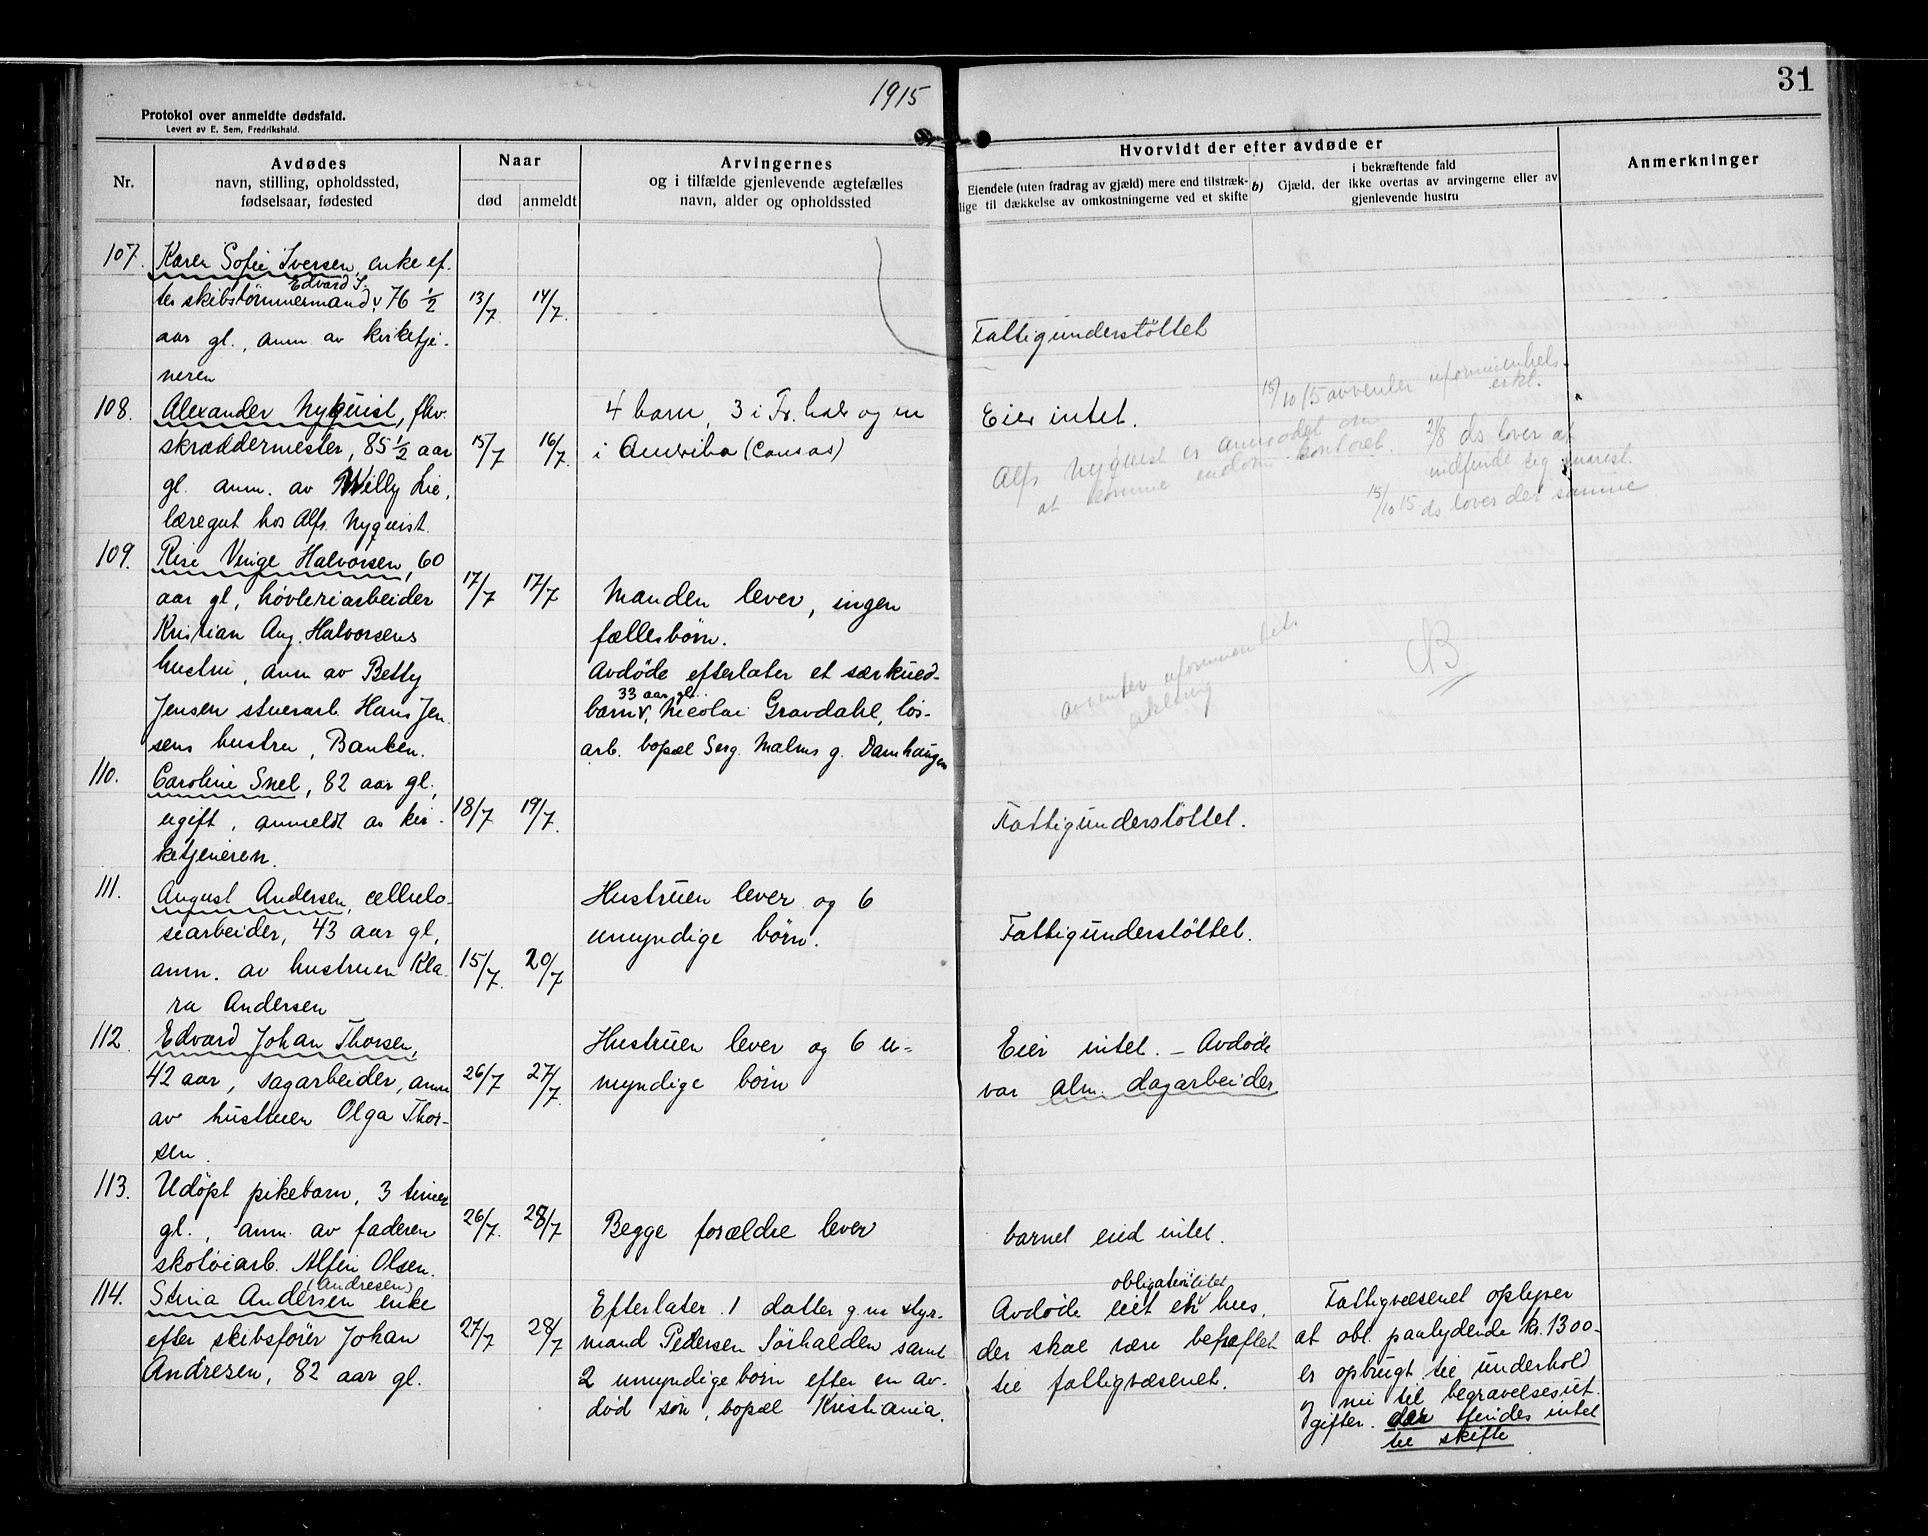 1915
31
Protokol over anmeldte dødsfald.
Levert av E. Sem, Fredrikshald.
Nr.
Avdødes
navn, stilling, opholdssted,
fødselsaar, fødested
Naar
død
anmeldt
Arvingernes
og i tilfælde gjenlevende ægtefælles
navn, alder og opholdssted
Hvorvidt der efter avdøde er
Eiendele (uten fradrag av gjæld) mere end tilstræk-
lige til dækkelse av omkostningerne ved et skifte
b)
i bekræftende fald
Gjæld, der ikke overtas av arvingerne eller av
gjenlevende hustru
Anmerkninger
107.
Karen Sofie Iversen, enke ef-
Edvard I.
ter skibstømmermand v 76 1/2
aar gl., anm. av kirketje-
neren
13/7
14/7.
Fattigunderstøttet
108.
Alexander Nyquist, fhv.
skræddermester, 85 1/2 aar
gl. anm. av Willy Lie,
læregut hos Alfr. Nyquist.
15/7
16/7.
4 barn, 3 i Fr.hald og en
i Amerika (Cansas)
Eier intet.
15/10 15 avventer uformuenhets
erkl.
Alfr Nyquist er anmodet om
at komme indom kontoret.
21/8 ds lover at
indfinde sig snarest.
15/10 15 ds lover det samme
109.
Rise Vinge Halvorsen, 60
aar gl, høvleriarbeider
Kristian Aug. Halvorsens
hustru, anm av Betty
Jensen stuerarb. Hans Jen-
sens hustru, Banken.
17/7
17/7
Manden lever, ingen
fællesbørn.
Avdøde efterlater et særkued-
33 aar gl.
barn v, Nicolai Gravdahl, løs-
arb. bopæl Serg. Malms g. Damhaugen
avventer uformuenhets
erklæring
NB
110.
Caroline Snel, 82 aar gl.,
ugift, anmeldt av kir-
ketjeneren.
18/7
19/7.
Fattigunderstøttet.
111.
August Andersen, cellulo-
searbeider, 43 aar gl,
anm. av hustruen Kla-
ra Andersen
15/7.
20/7
Hustruen lever og 6
umyndige børn.
Fattigunderstøttet.
112.
Edvard Johan Thorsen,
42 aar, sagarbeider, anm
av hustruen Olga Thor-
sen.
26/7
27/7.
Hustruen lever og 6 u-
myndige børn
Eier intet. – Avdøde
var alm. dagarbeider
113.
Udøpt pikebarn, 3 timer
gl., anm. av faderen
skotøiarb. Alfin Olsen.
26/7.
28/7
Begge forældre lever
barnet eied intet.
114.
(Andresen)
Stina Andersen enke
efter skibsfører Johan
Andresen, 82 aar gl.
27/7
28/7
Efterlater 1 datter g.m styr-
mand Pedersen Sørhalden samt
2 umyndige børn efter en av-
død søn, bopæl Kristiania.
Avdøde eiet en hus,
der skal være behæftet
til fattigvæsenet.
Fattigvæsenet oplyser
at obl. paalydende kr. 1300-
er opbrugt til underhold
og nu til begravelsesut-
gifter. der findes intet
til skifte